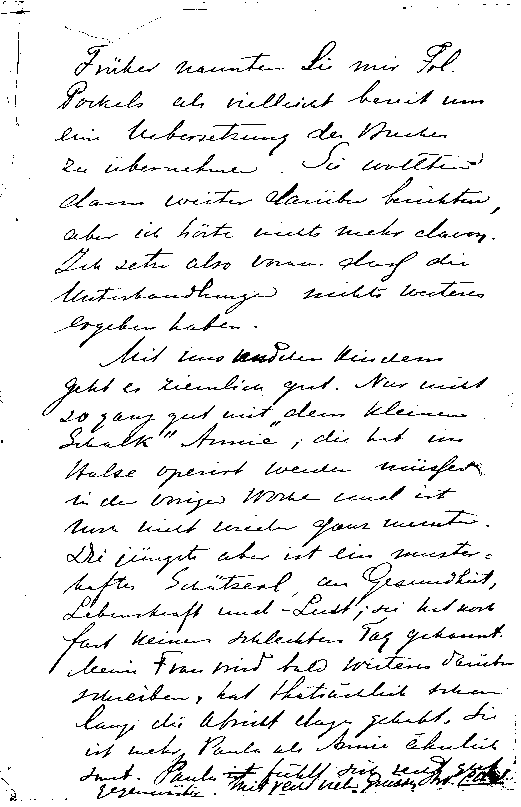 Früher nannten Sie mir Frl.
Pockels als vielleicht bereit um
eine Uebersetzung des Buches
zu übernehmen. Sie wollten
dann weiter darüber berichten,
aber ich hörte nichts mehr davon.
Ich setze also voraus dass die
Unterhandlungen nichts weiteres
ergeben haben.
Mit uns und den Kindern
geht es ziemlich gut. Nur nicht
so ganz gut mit dem kleinen
Schalk "Annie", die hat im
Halse operirt werden müssen
in der vorigen Woche und ist
noch nicht wieder ganz munter.
Die jüngste aber ist ein muster-
haftes Schätzerl, an Gesundheit,
Lebenskraft und -Lust; sie hat noch
fast keinen schlechten Tag gekannt.
Meine Frau wird bald weiteres darüber
schreiben, hat thatsächlich schon
lange die Absicht dazu gehabt. Sie
ist mehr Paula als Annie ähnlich
sonst. Paula fühlt sich recht gut
gegenwärtig. Mit recht viel. Grüssen, Ihr